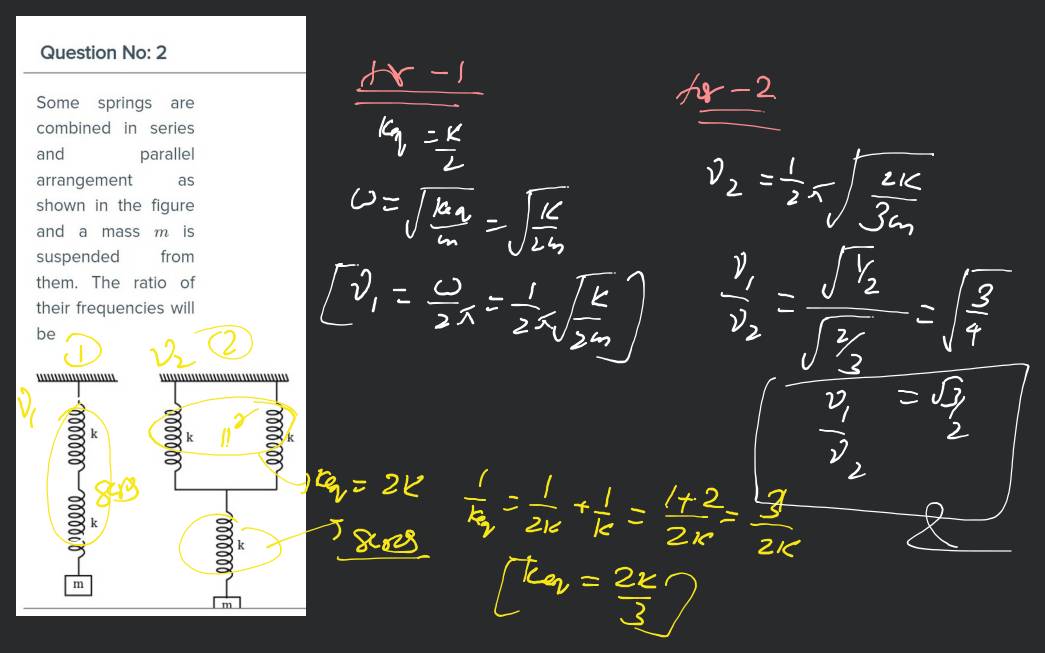 Question No: 2
Some springs are
combined in series
and parallel
arrangement as
shown in the figure
and a mass m is
suspended from
them. The ratio of
their frequencies will
be
1
ν₂ 2
ν₁
k
k
k
k
k
m
m
ΙΙʳ
keq = 2K
series
fr - 1
Keq = K/2
ω = √(keq/m) = √(K/2m)
[ν₁ = ω/2π = 1/2π √(K/2m)]
fr - 2
ν₂ = 1/2π √(2K/3m)
ν₁/ν₂ = √(1/2)/√(2/3) = √(3/4)
ν₁/ν₂ = √3/2
1/keq = 1/2K + 1/K = 1+2/2K = 3/2K
[keq = 2K/3]